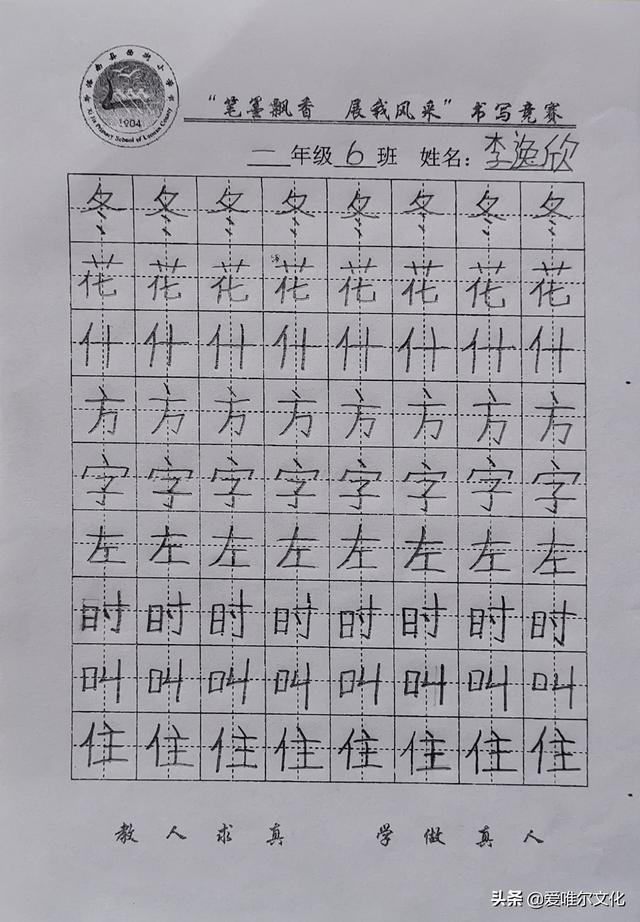 1904
“笔墨飘香 展我风采”书写竞赛
一年级 6 班 姓名：李逸欣
冬 冬 冬 冬 冬 冬 冬 冬
花 花 花 花 花 花 花 花
什 什 什 什 什 什 什 什
方 方 方 方 方 方 方 方
字 字 字 字 字 字 字 字
左 左 左 左 左 左 左 左
时 时 时 时 时 时 时 时
叫 叫 叫 叫 叫 叫 叫 叫
住 住 住 住 住 住 住 住
教人求真 学做真人
头条 @爱唯尔文化